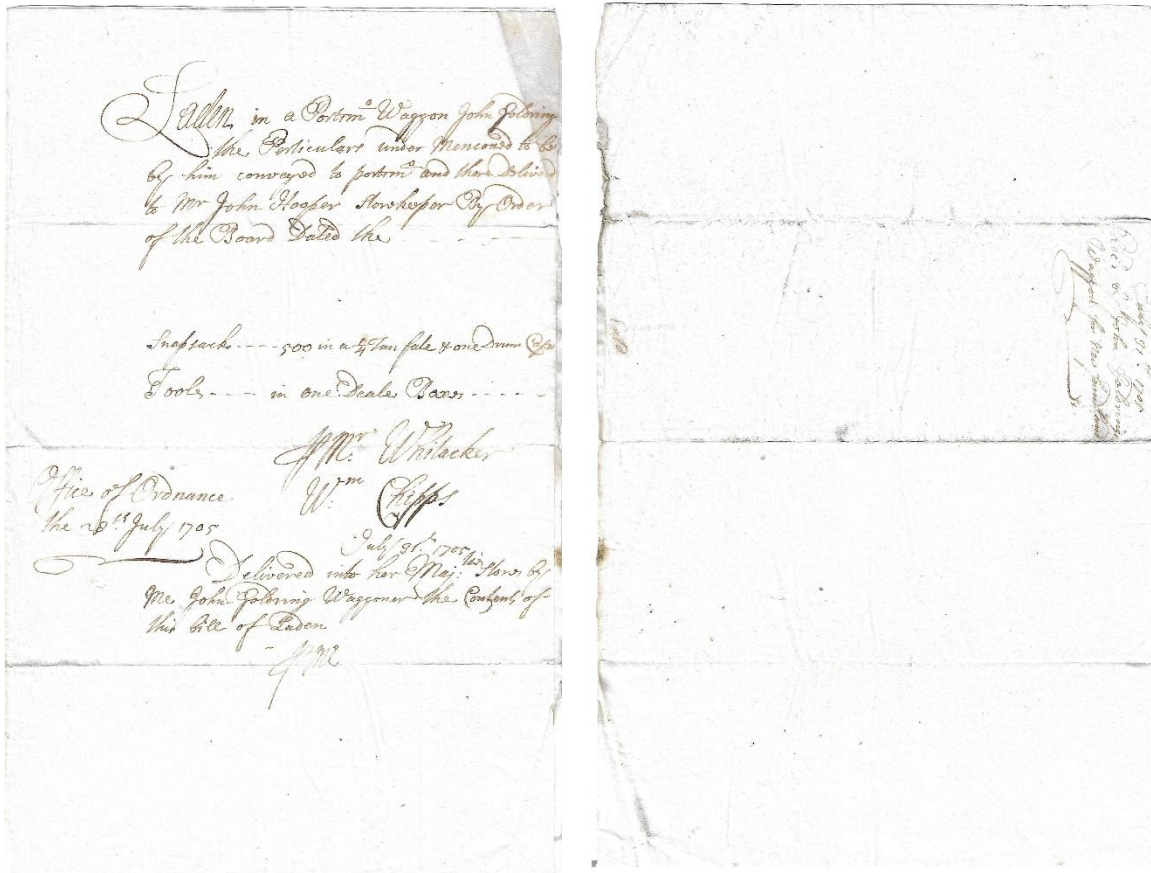 Laden in a Portsmo Waggon John Goldring
the Perticulars under Menconed to be
by him conveyed to portsmo and there Deliverd
to Mr John Hooper Storekeeper By Order
of the Board Dated the - - - -
Snapsacks - - - - 500 in a Tun fate & one Drum
Tooles - - - - in one Deale Boxes - - - - -
Mr. Whitacker
Wm. Chipps
Office of Ordnance
the 28th July 1705
July 31st 1705
Delivered into her Majties Stores by
Me John Goldring Waggoner the Contents of
this bill of Laden
July 31st 1705
Recd of John Goldring
Waggon for